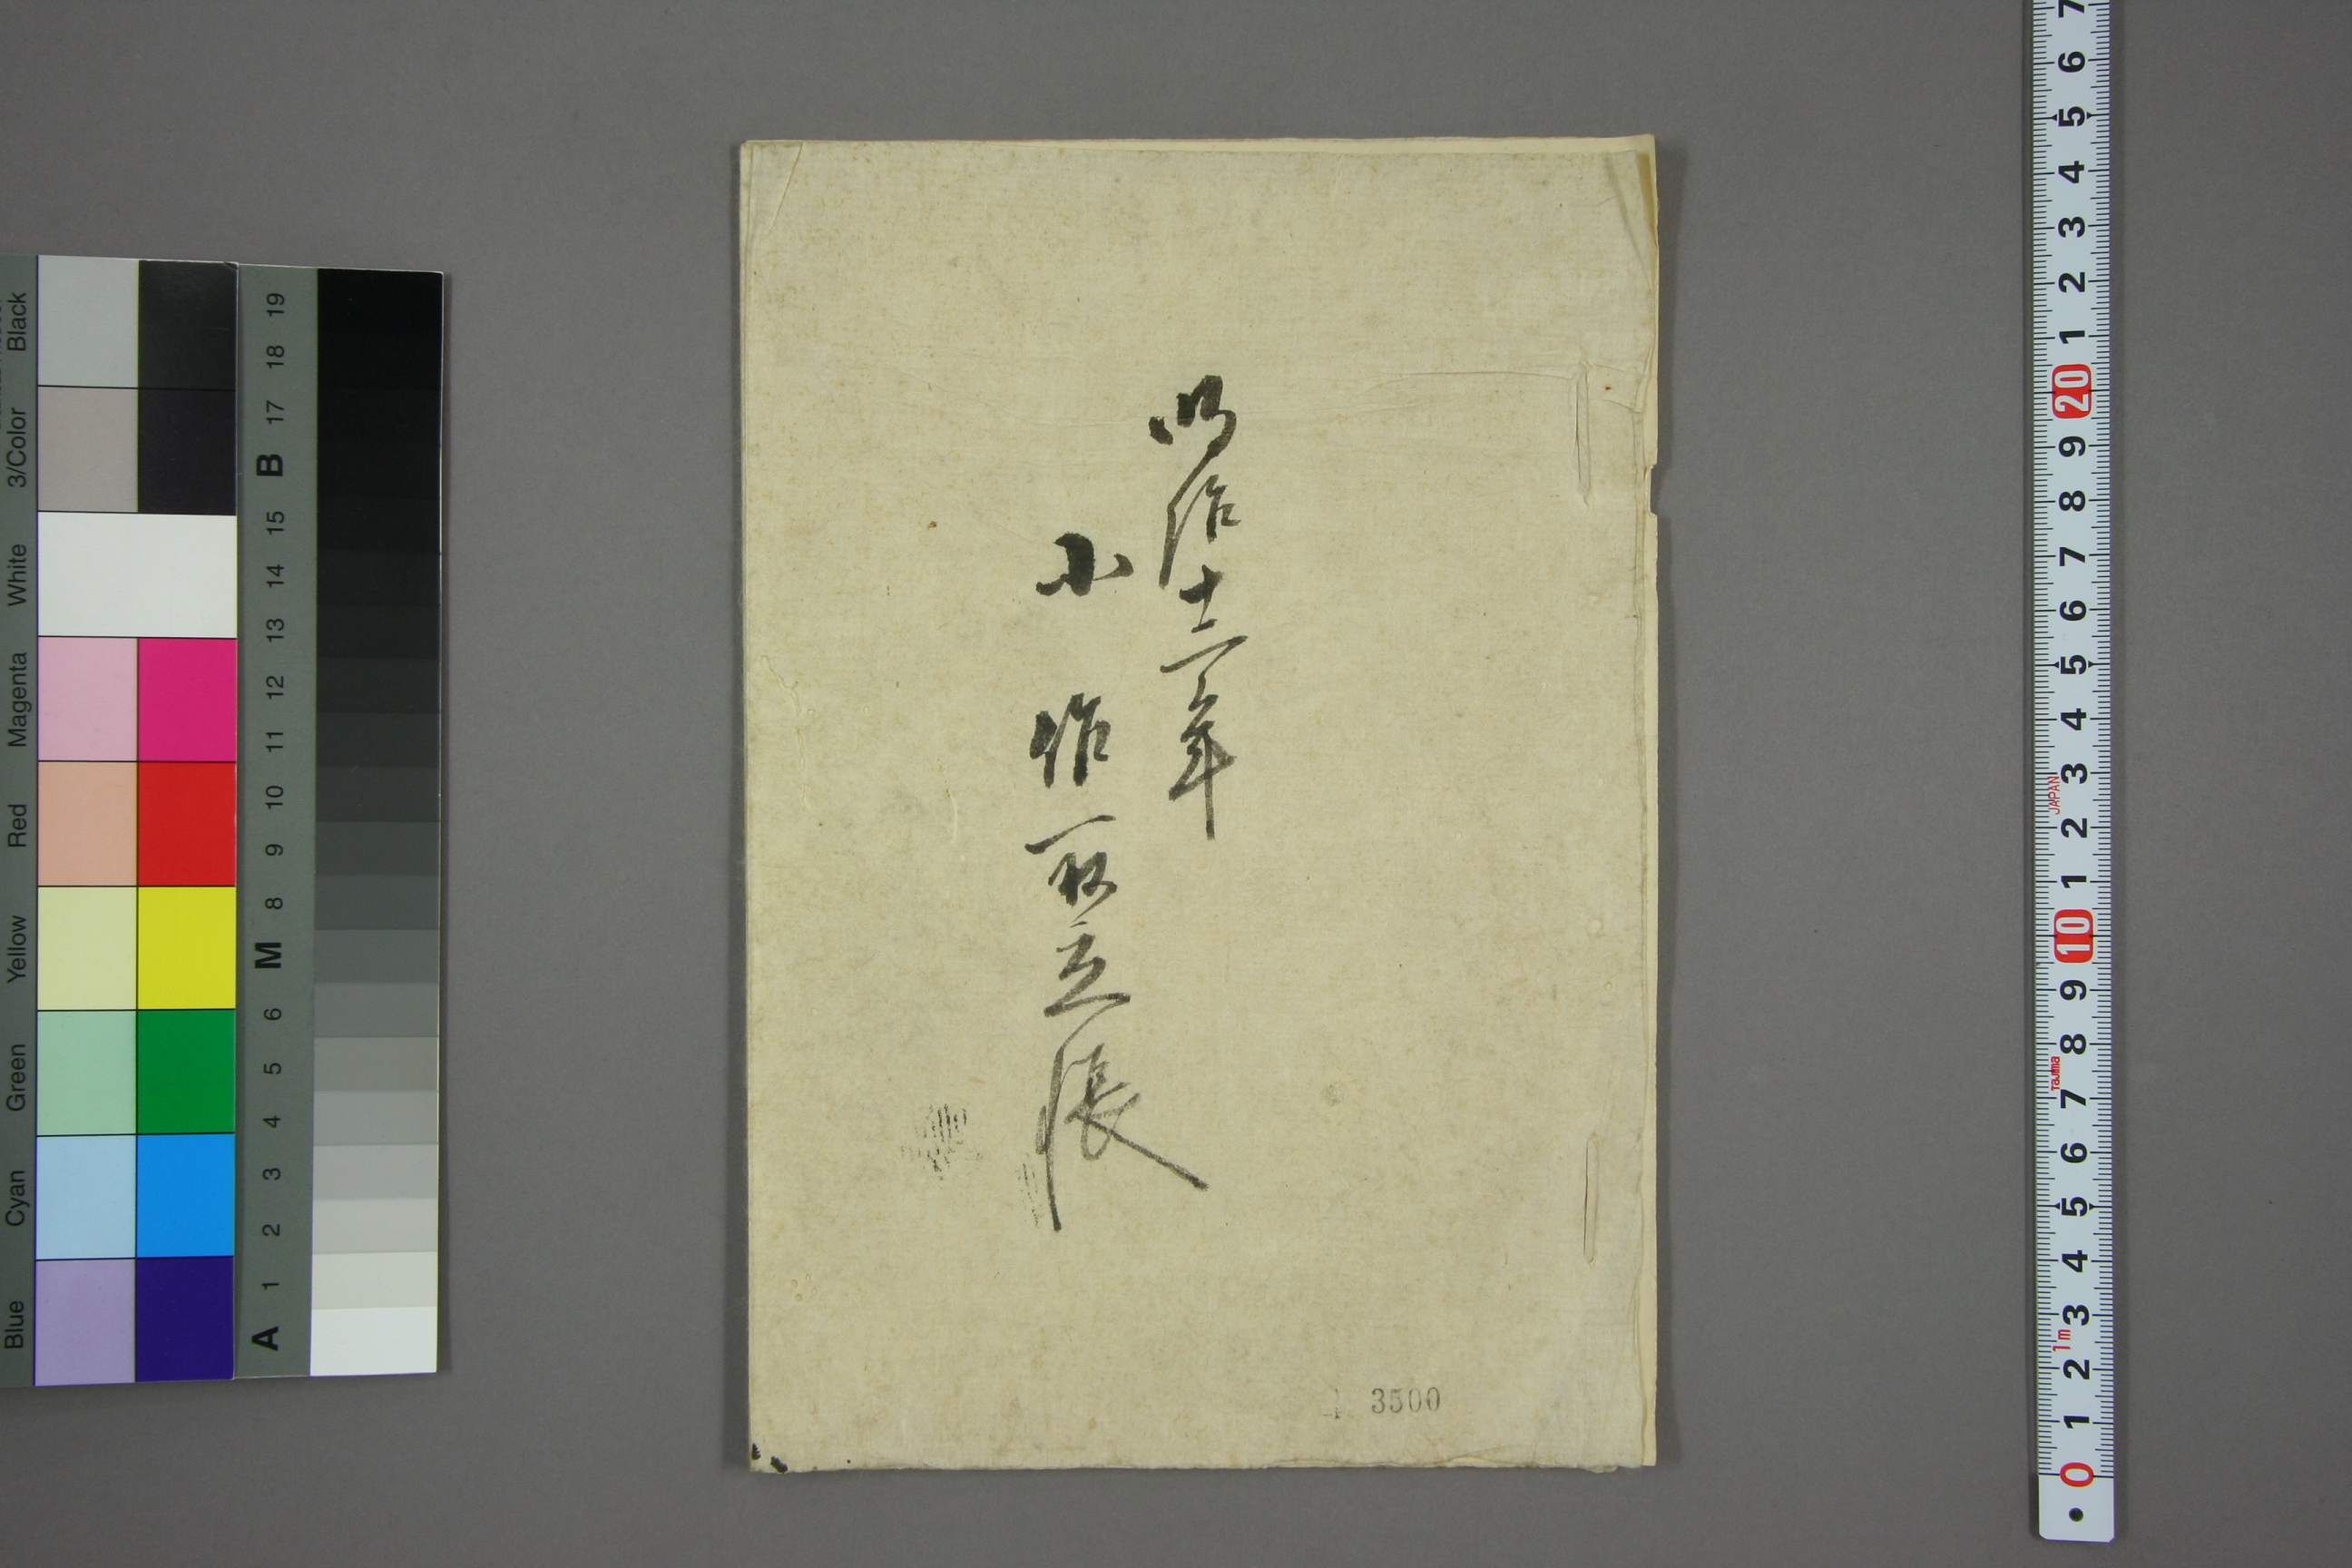 明治十二年
小作取立帳
3500
Blue Cyan Green Yellow Red Magenta White 3/Color Black
A 1 2 3 4 5 6 M 8 9 10 11 12 13 14 15 B 17 18 19
0 1 2 3 4 5 6 7 8 9 10 1 2 3 4 5 6 7 8 9 20 1 2 3 4 5 6 7
1m
Tajima
JAPAN